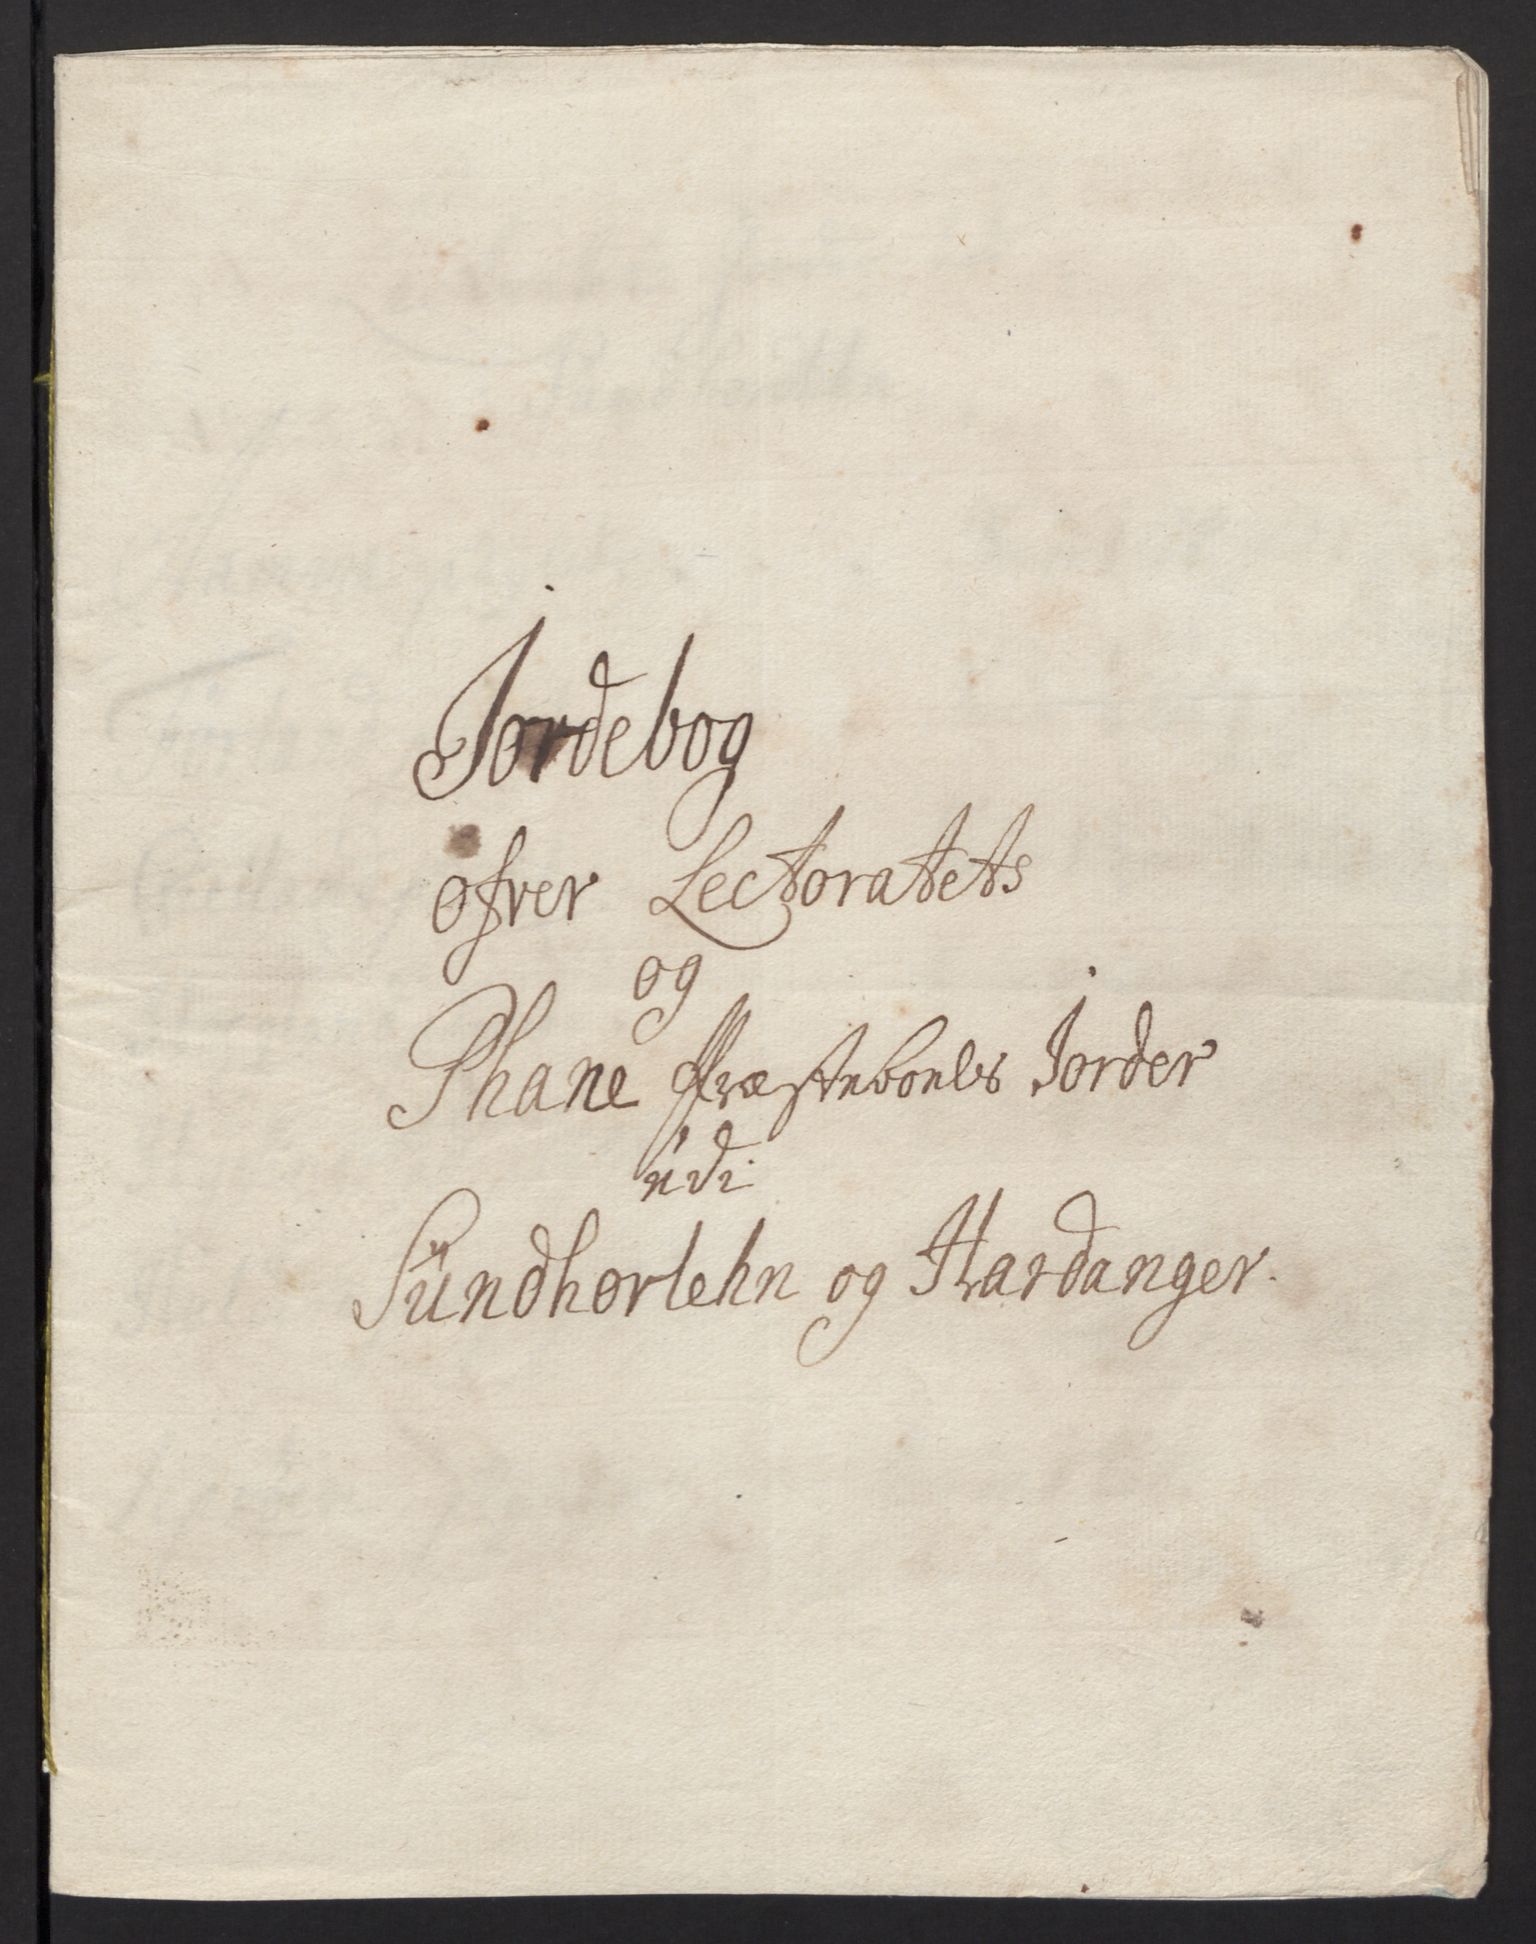 Jordebog
ofver Lectoratets
og
Phane Præstebouls Jorder
udi
Sundhorlehn og Hardanger.